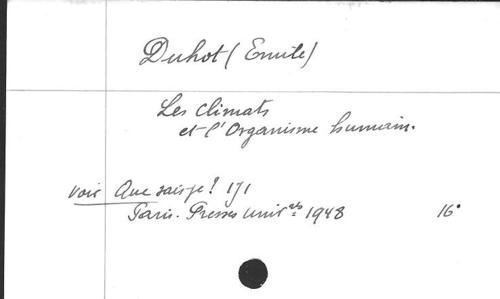 Duhot (Emile)
Les climats
et l'Organisme humain.
voir Que sais-je! 171
Paris. Presses Univ.res 1948 16°